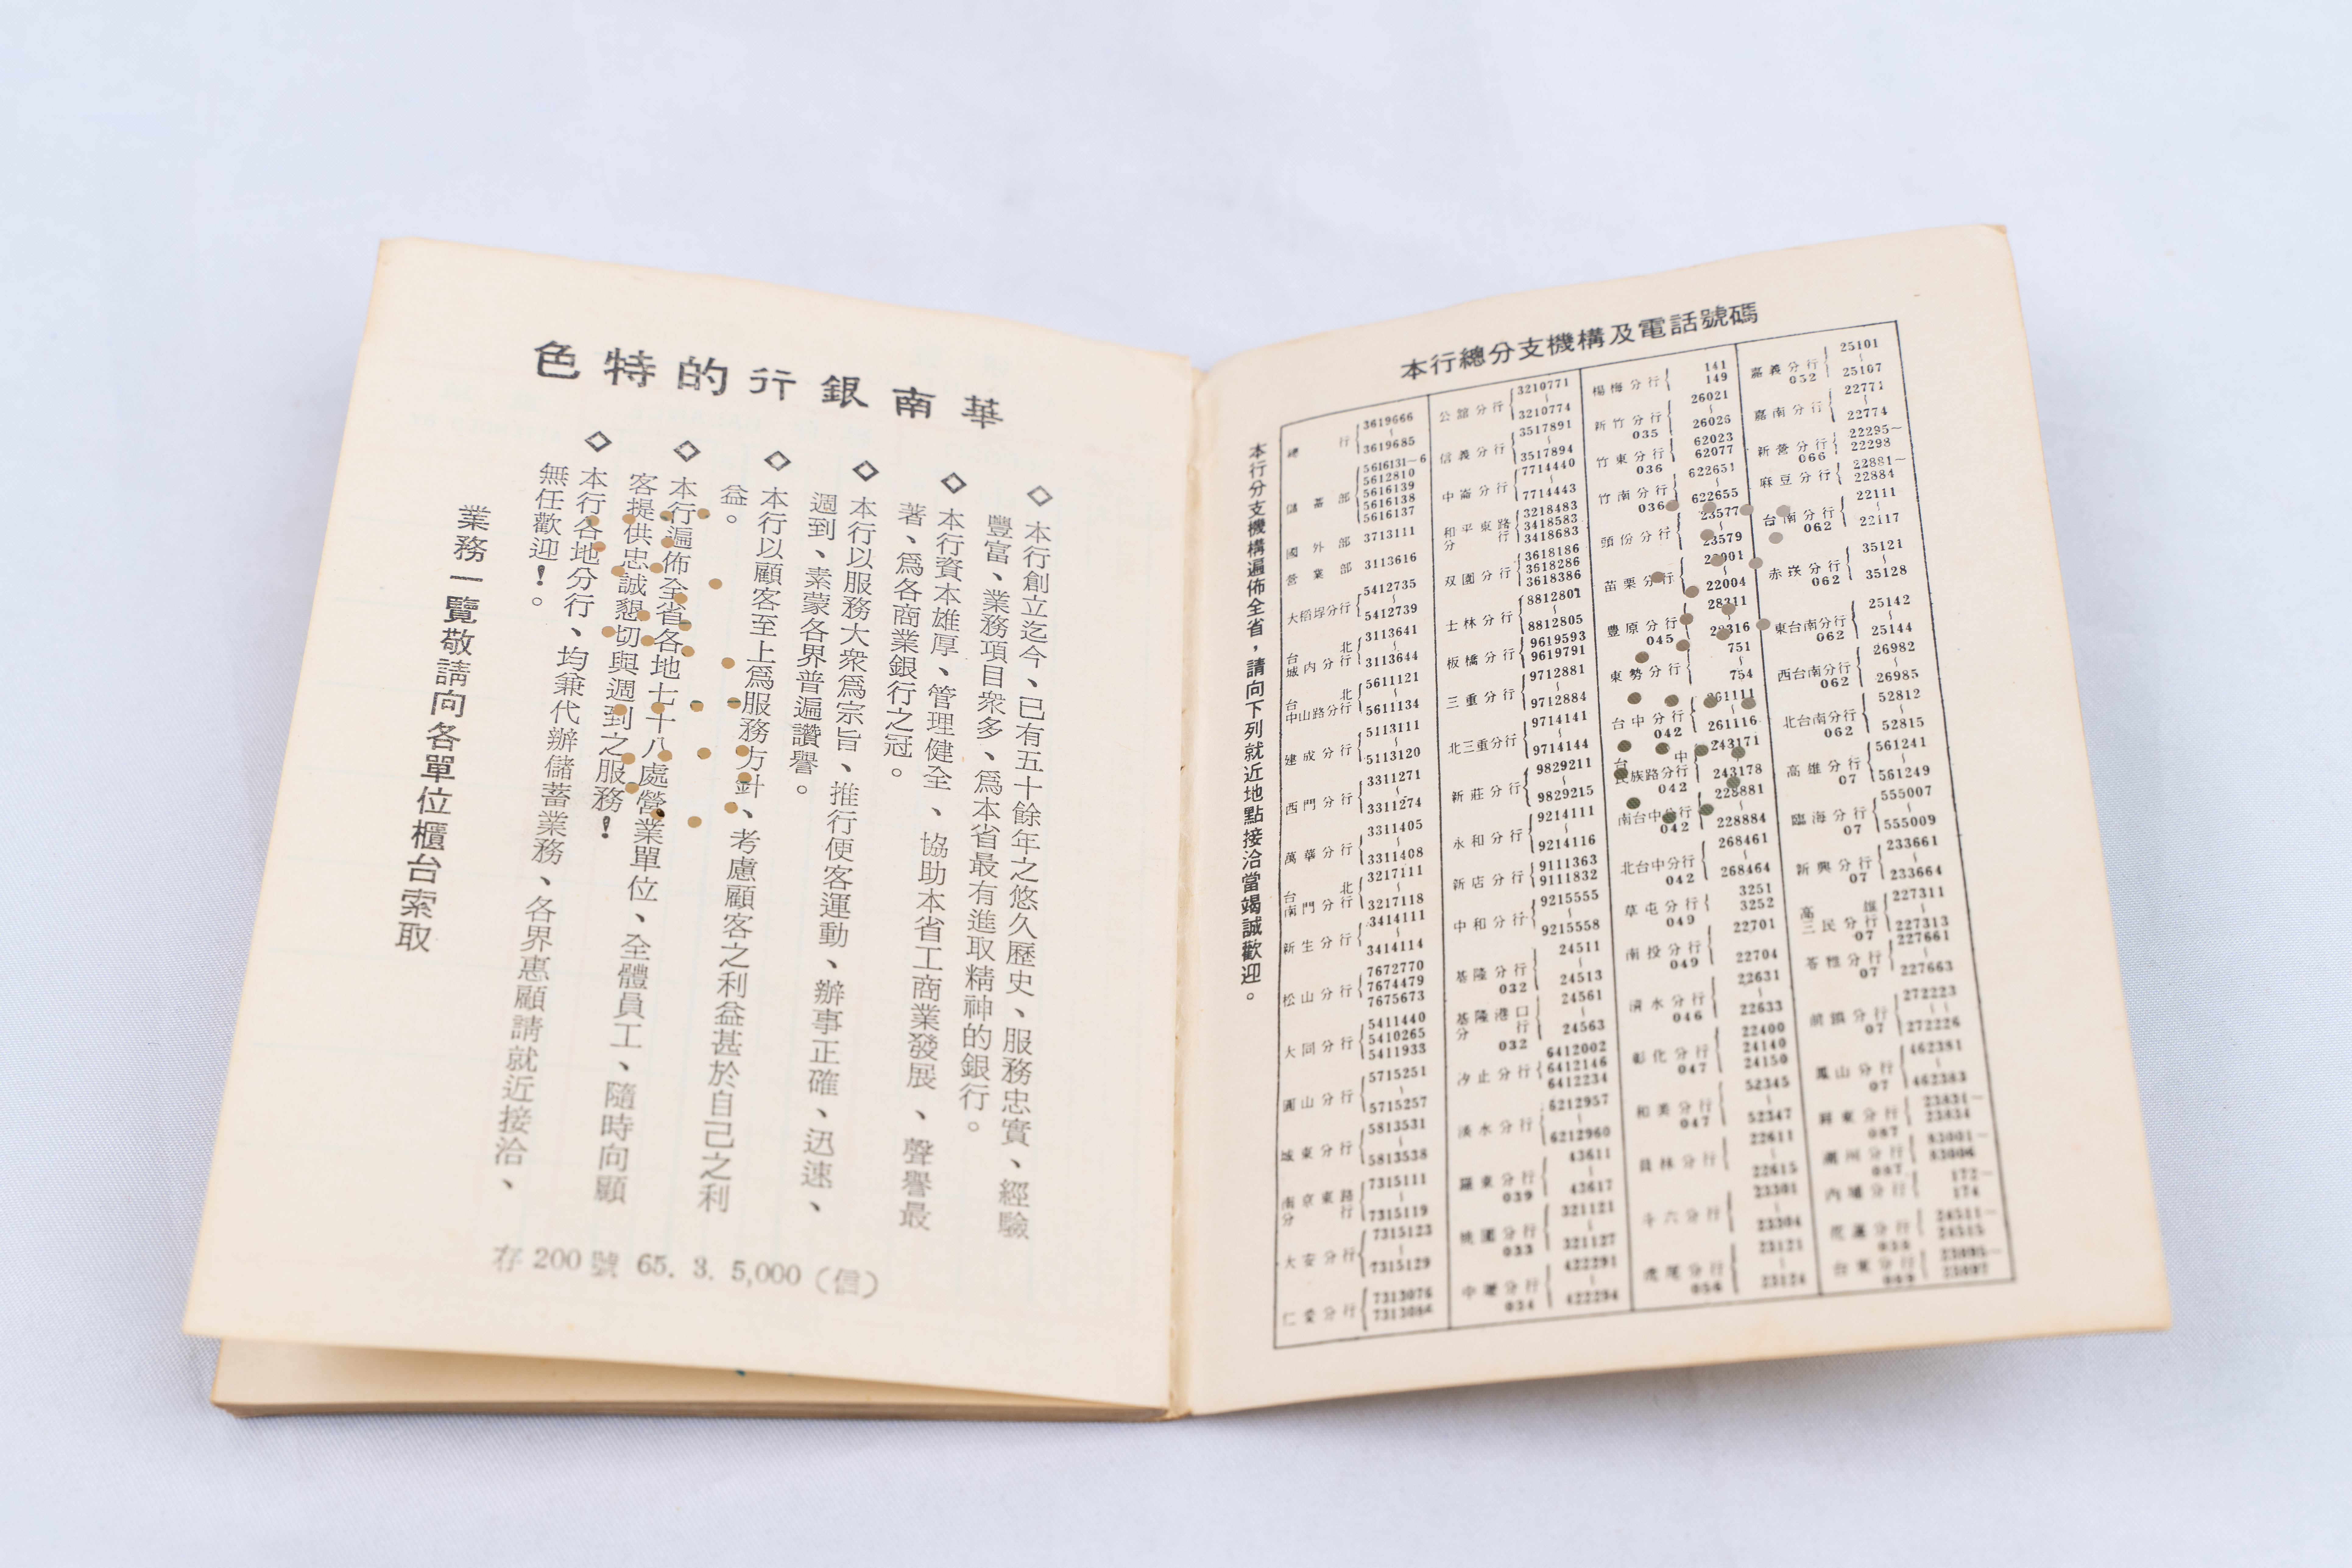 華南銀行的特色
◇本行創立迄今、已有五十餘年之悠久歷史、服務忠實、經驗
豐富、業務項目衆多、爲本省最有進取精神的銀行。
◇本行資本雄厚、管理健全、協助本省工商業發展、聲譽最
著、爲各商業銀行之冠。
◇本行以服務大衆爲宗旨、推行便客運動、辦事正確、迅速、
週到、素蒙各界普遍讚譽。
◇本行以顧客至上爲服務方針、考慮顧客之利益甚於自己之利
益。
◇本行遍佈全省各地七十八處營業單位、全體員工、隨時向顧
客提供忠誠懇切與週到之服務!
◇本行各地分行、均兼代辦儲蓄業務、各界惠顧請就近接洽、
無任歡迎!。
業務一覽敬請向各單位櫃台索取
存 200 號 65. 3. 5,000 (信)
本行總分支機構及電話號碼
本行分支機構遍佈全省，請向下列就近地點接洽當竭誠歡迎。
總行 3619666~3619685
儲蓄部 5616131-6 5612810 5616139 5616138 5616137
國外部 3713111
營業部 3113616
大稻埕分行 5412735~5412739
台北城內分行 3113641~3113644
台北中山路分行 5611121~5611134
建成分行 5113111~5113120
西門分行 3311271~3311274
萬華分行 3311405~3311408
台北南門分行 3217111~3217118
新生分行 3414111~3414114
松山分行 7672770 7674479 7675673
大同分行 5411440 5410265 5411933
圓山分行 5715251~5715257
城東分行 5813531~5813538
南京東路分行 7315111~7315119
大安分行 7315123~7315129
仁愛分行 7313076 7313086
公舘分行 3210771~3210774
信義分行 3517891~3517894
中崙分行 7714440~7714443
和平東路分行 3218483 3418583 3418683
双園分行 3618186 3618286 3618386
士林分行 8812801~8812805
板橋分行 9619593 9619791
三重分行 9712881~9712884
北三重分行 9714141~9714144
新莊分行 9829211~9829215
永和分行 9214111~9214116
新店分行 9111363 9111832
中和分行 9215555~9215558
基隆分行 032 24511~24513
基隆港口分行 032 24561~24563
汐止分行 6412002 6412146 6412234
淡水分行 6212957~6212960
羅東分行 039 43611~43617
桃園分行 033 321121~321127
中壢分行 034 422291~422294
楊梅分行 141 149
新竹分行 035 26021~26026
竹東分行 036 62023 62077
竹南分行 036 622651~622655
頭份分行 23577~23579
苗栗分行 22004
豐原分行 045 28311
東勢分行 751~754
台中分行 042 261111~261116
台中民族路分行 042 243171~243178
南台中分行 042 228881~228884
北台中分行 042 268461~268464
草屯分行 049 3251 3252
南投分行 049 22701~22704
清水分行 046 22631~22633
彰化分行 047 22400 24140 24150
和美分行 047 52345~52347
員林分行 22611~22615
斗六分行 23301~23304
虎尾分行 056 23121~23124
嘉義分行 052 25101~25107
嘉南分行 22771~22774
新營分行 066 22295~22298
麻豆分行 22881~22884
台南分行 062 22111~22117
赤崁分行 062 35121~35128
東台南分行 062 25142~25144
西台南分行 062 26982~26985
北台南分行 062 52812~52815
高雄分行 07 561241~561249
臨海分行 07 555007~555009
新興分行 07 233661~233664
高雄三民分行 07 227311~227313
苓雅分行 07 227661~227663
前鎮分行 07 272223~272226
鳳山分行 07 462381~462383
屏東分行 087 23831~23834
潮州分行 087 83001~83006
內埔分行 172~174
花蓮分行 24511~24515
台東分行